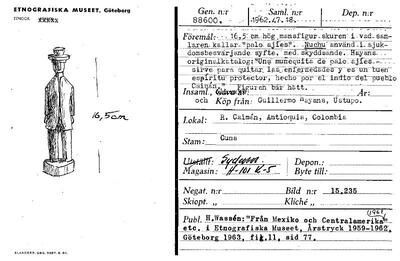 ETNOGRAFISKA MUSEET, Göteborg
Gen. n:r
Saml. n:r
Dep. n:r
88600.
1962.47.18.
Föremål: 16,5 cm hög mansfigur, skuren i vad sam-
laren kallar "palo ajíes". Nuchu använd i sjuk-
domsbesvärjande syfte, med skyddande. Hayans
originalkatalog: "Uno muñequito de palo ajíes
sirve para quitar las enfermedades y es un buen
espíritu protector, hecho por el indio del pueblo
Caimán." Figuren bär hatt.
16,5 cm
Insaml.
År:
och Köp från: Guillermo Hayans, Ustupo.
Lokal: R. Caimán, Antioquia, Colombia
Stam: Cuna
Utställt:
Depon.:
Magasin:
Byte till:
Negat. n:r
Bild n:r 15,235
Skiopt. „
Kliché „
(1961)
Publ. H.Wassén: "Från Mexiko och Centralamerika"
etc. i Etnografiska Museet, Årstryck 1959-1962,
Göteborg 1963, fig.11, sid 77.